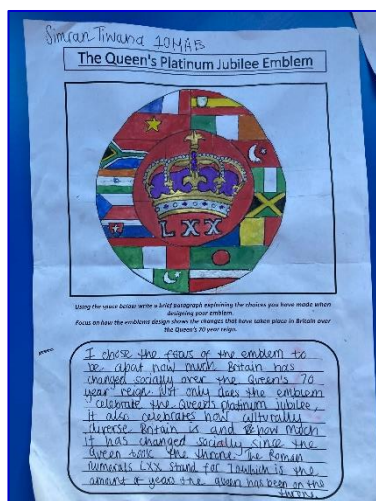 Simran Tiwana 10MAB
The Queen's Platinum Jubilee Emblem
LXX
Using the space below write a brief paragraph explaining the choices you have made when
designing your emblem.
Focus on how the emblems design shows the changes that have taken place in Britain over
the Queen's 70 year reign.
I chose the focus of the emblem to
be about how much Britain has
changed socially over the Queen's 70
year reign. Not only does the emblem
celebrate the Queen's platinum jubilee,
it also celebrates how culturally
diverse Britain is and how much
it has changed socially since the
queen took the throne. The Roman
numerals LXX stand for 70 which is the
amount of years the queen has been on the
throne